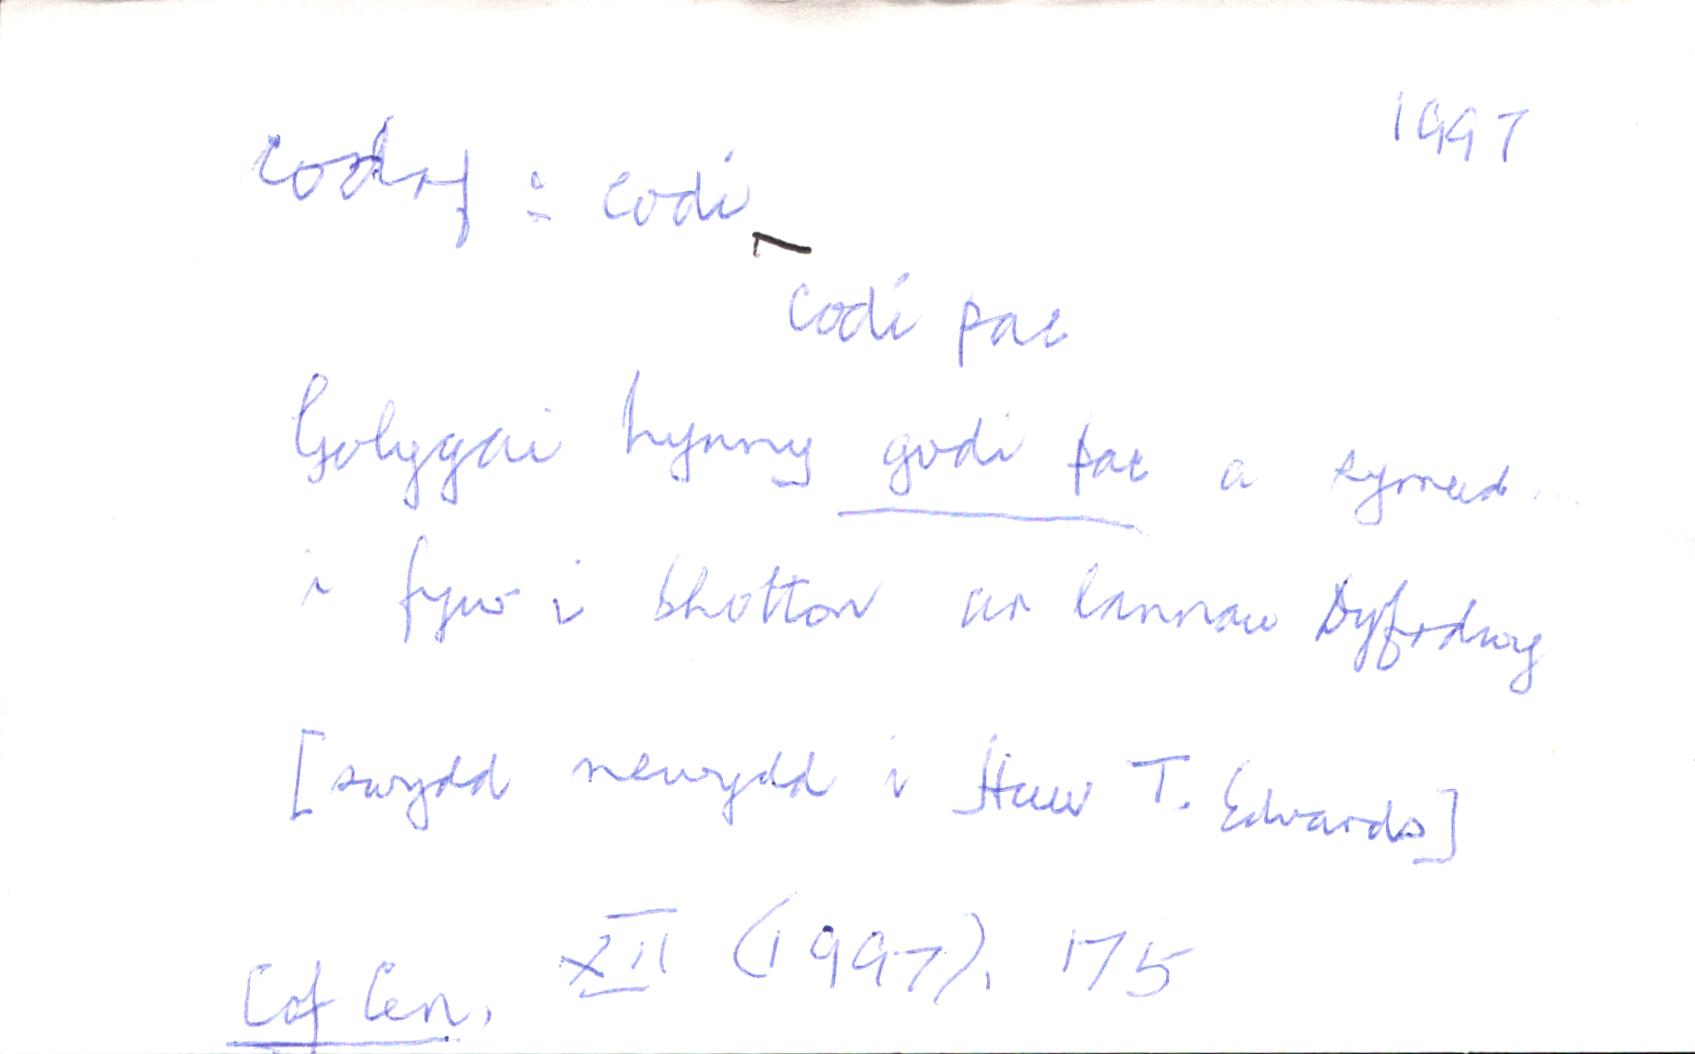 1997
codaf : codi
codi pac
Golygai hynny godi pac a symud
i fyw i Shotton ar lannau Dyfrdwy
[swydd newydd i Huw T. Edwards]
Cof Cen, XII (1997), 175